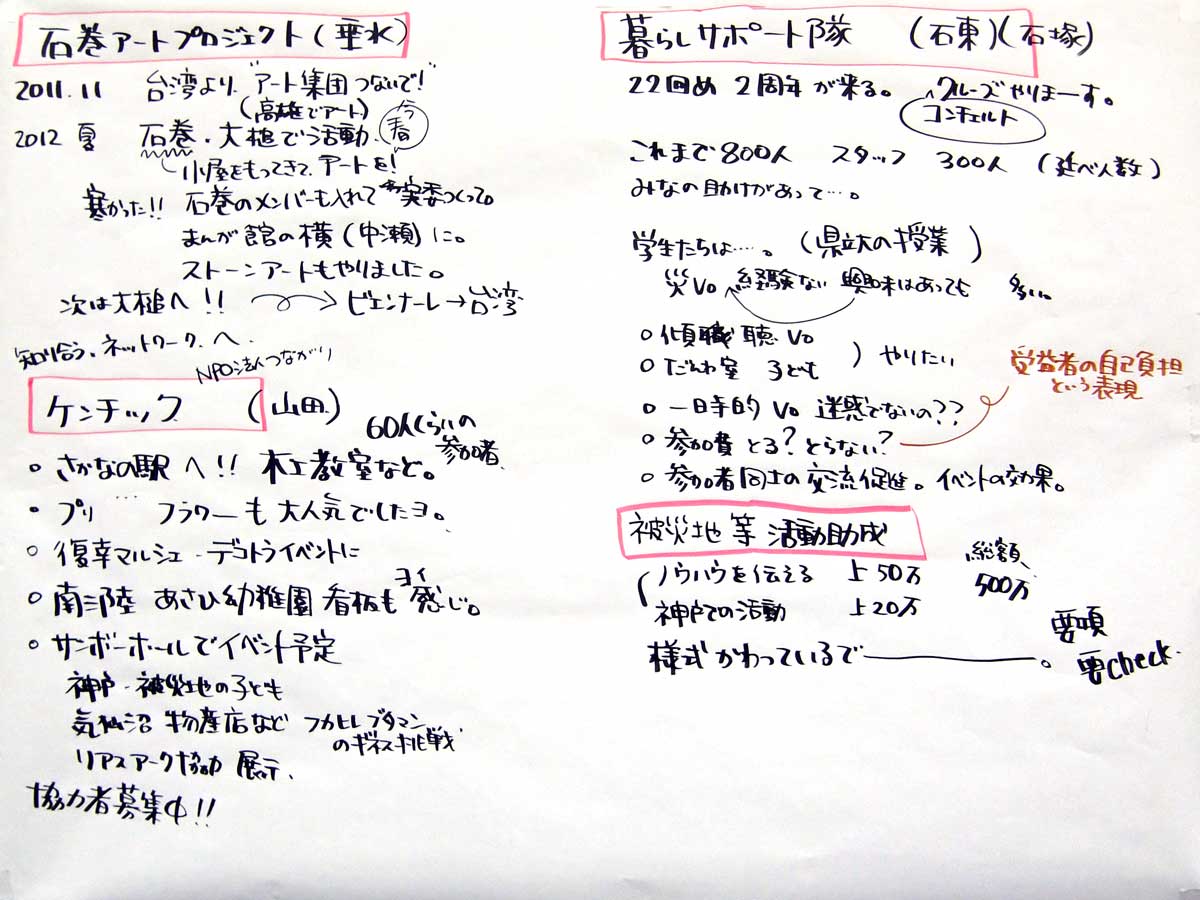 石巻アートプロジェクト(垂水)
2011.11 台湾より "アート集団つないで!"
(高雄でアート)
2012 夏 石巻・大槌で活動、今春
小屋をもってきて、アートを!
寒かった!! 石巻のメンバーも入れて 実委つくって。
まんが館の横(中瀬)に。
ストーンアートもやりました。
次は大槌へ!! ビエンナーレ→台湾
知り合う、ネットワークへ
NPO法人つながり
ケンチック (山田)
60人くらいの参加者
○ さかなの駅へ!! 木工教室など。
・ プリ … フラワーも大人気でしたヨ。
○ 復幸マルシェ・デコトライベントに
○ 南三陸 あさひ幼稚園 看板もヨイ感じ。
○ サンボーホールでイベント予定
神戸・被災地の子ども
気仙沼 物産店など フカヒレブタマン
のギネス挑戦
リアスアーク協力 展示、
協力者募集中!!
暮らしサポート隊 (石東)(石塚)
22回め 2周年が来る。 クルーズやりまーす。
コンチェルト
これまで800人 スタッフ 300人 (延べ人数)
みなの助けがあって…。
学生たちは…。 (県立大の授業)
災Vo 経験ない 興味はあっても 多い。
○ 傾聴 Vo
○ だんわ室 子ども ) やりたい
○ 一日寺的 Vo 迷惑でないの??
○ 参加費 とる? とらない?
受益者の自己負担
という表現
○ 参加者同士の交流促進。イベントの効果。
被災地等 活動助成
ノウハウを伝える 上50万 総額
500万
神戸での活動 上20万
様式かわっているで———。 要項
要check.